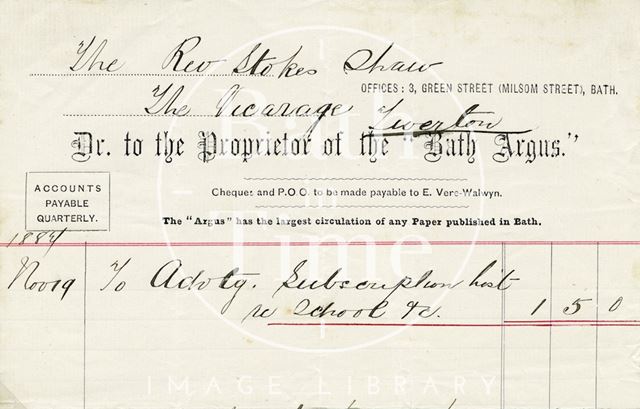 The Rev Stokes Shaw
OFFICES: 3, GREEN STREET (MILSOM STREET), BATH.
The Vicarage Twerton
Dr. to the Proprietor of the "Bath Argus."
ACCOUNTS
PAYABLE
QUARTERLY.
Cheques and P.O.O. to be made payable to E. Vere-Walwyn.
The "Argus" has the largest circulation of any Paper published in Bath.
Nov 19 To Advtg. Subscription list
re School &c. 1 5 0
Bath
in
Time
IMAGE LIBRARY